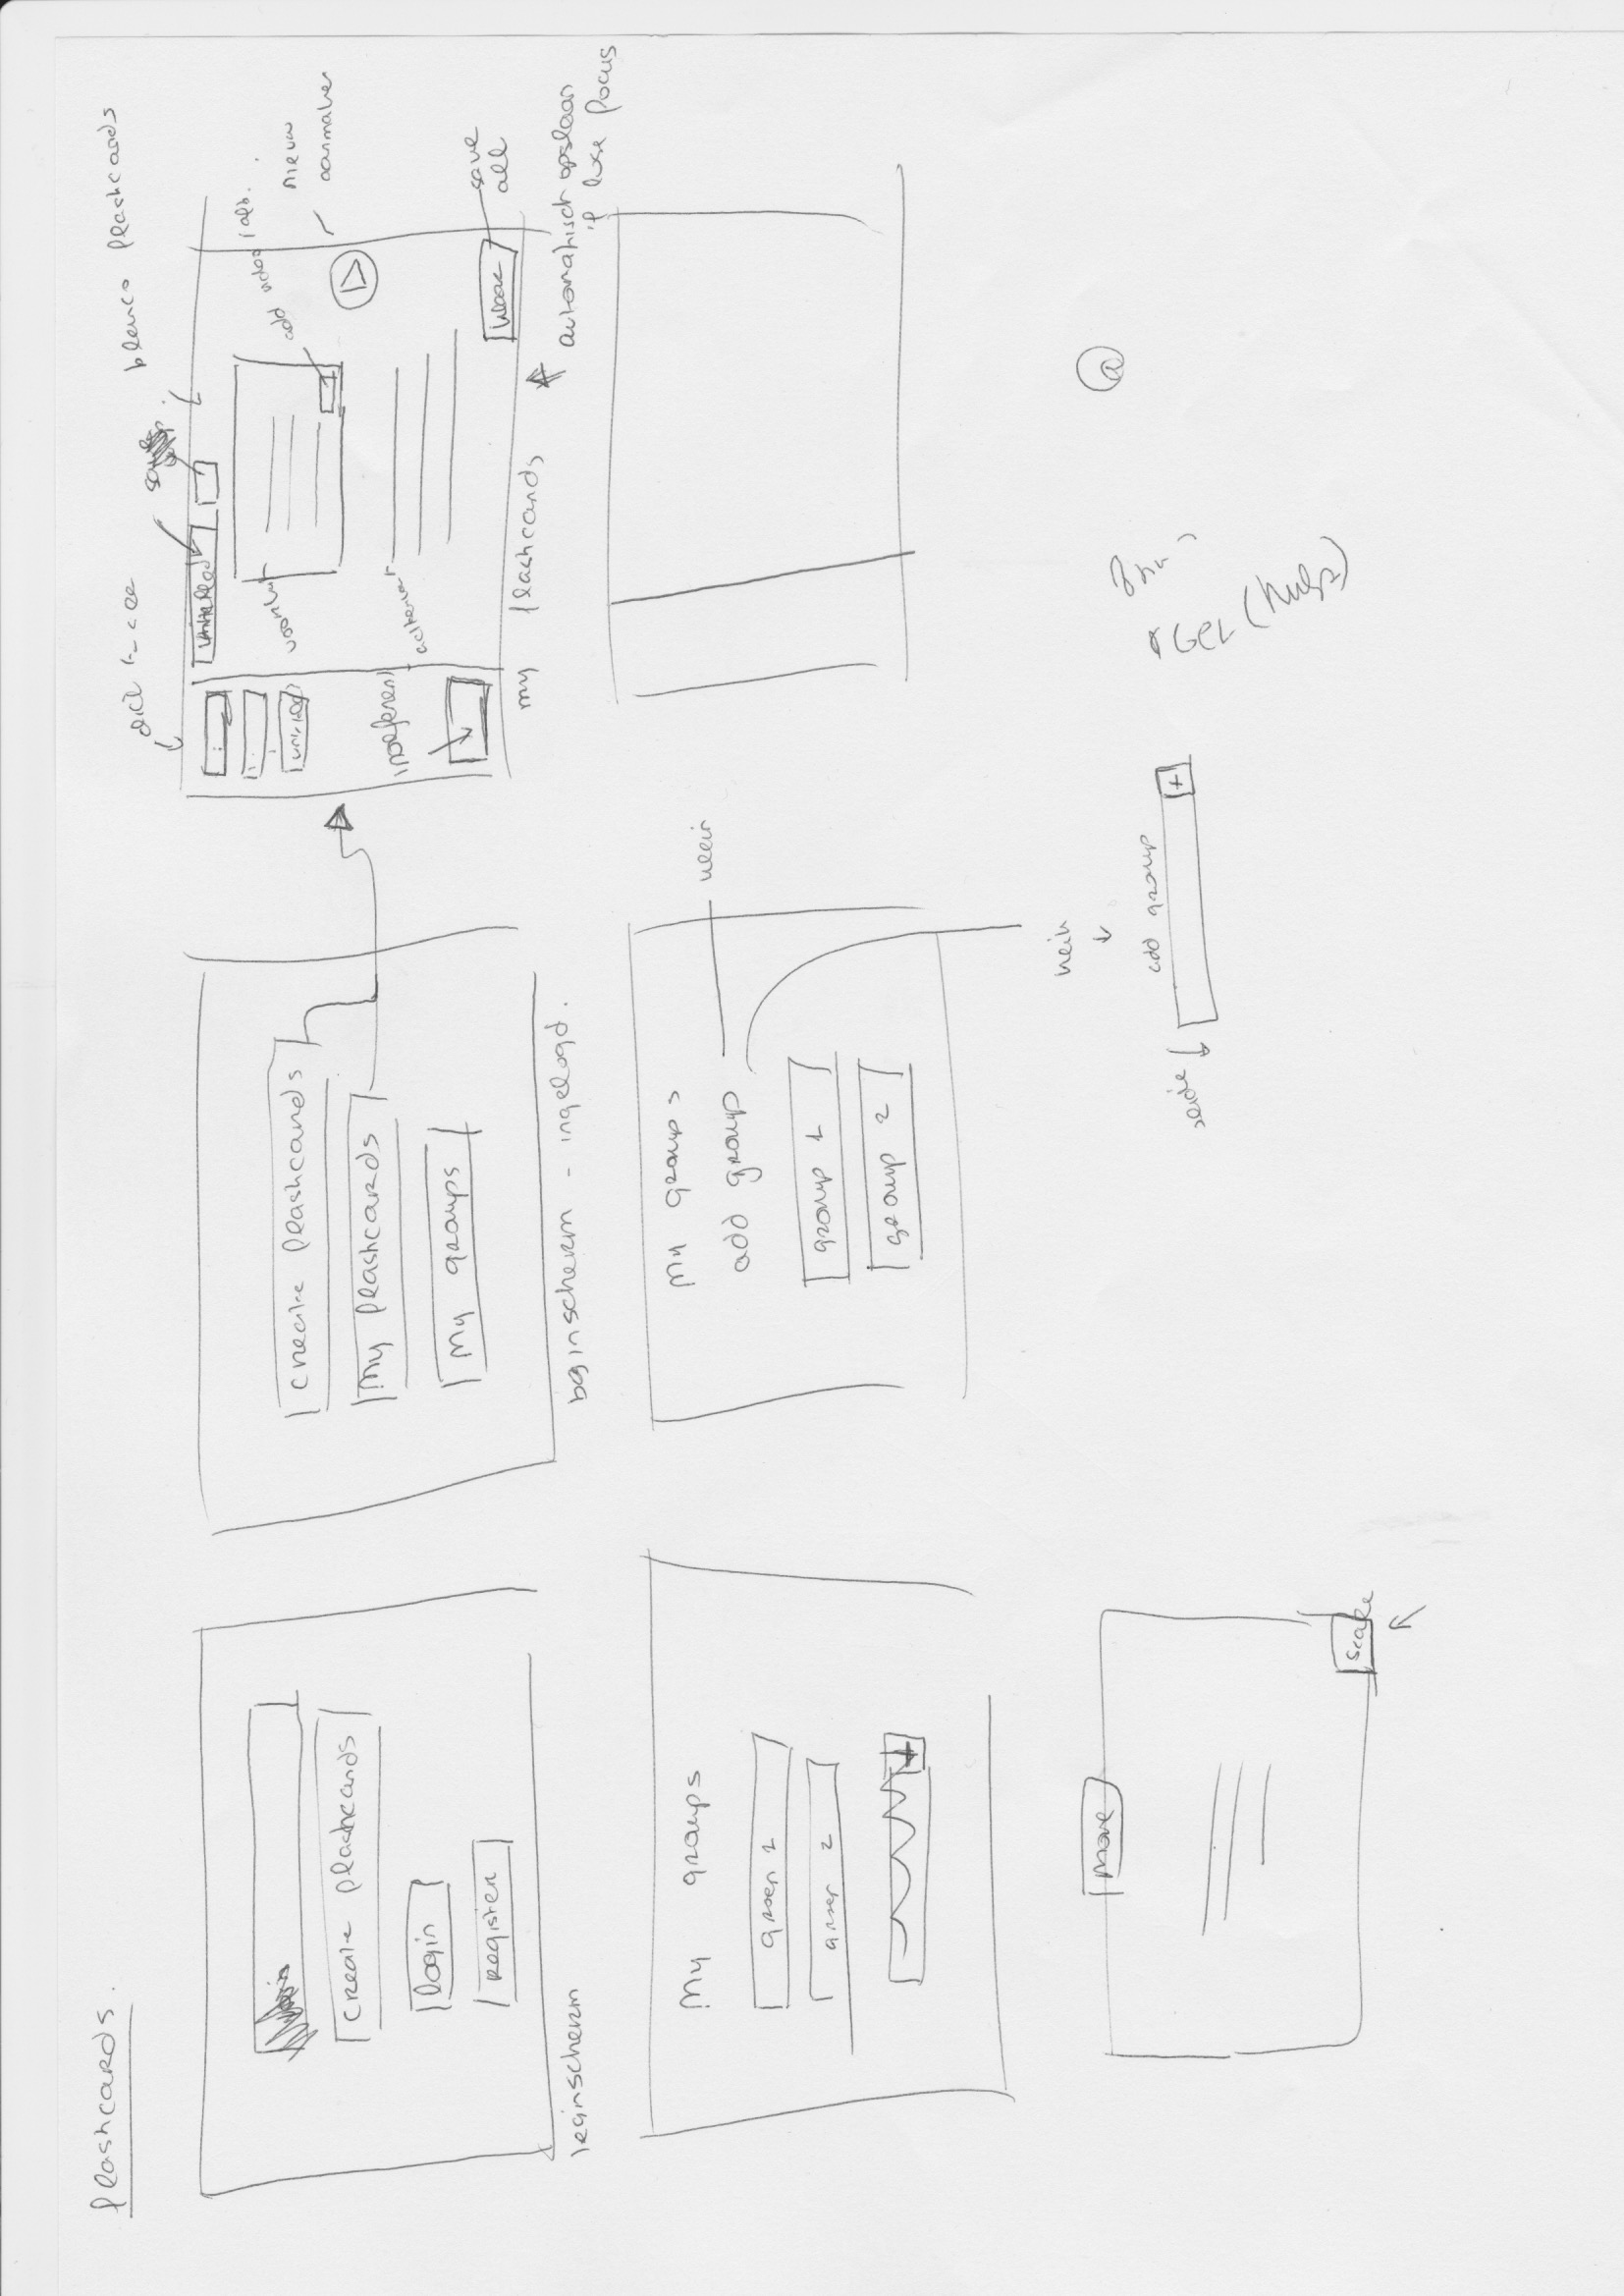 flashcards.
create flashcards
login
register
create flashcards
My flashcards
My groups
beginscherm - ingelogd.
save
blanco flashcards
untitled
voorkant
add video / afb.
nieuw
aanmaken
achterkant
klaar
save
all
my flashcards
automatisch opslaan
if lose focus
My groups
groep 1
groep 2
+
My groups
add group
group 1
group 2
add group
+
move
scale